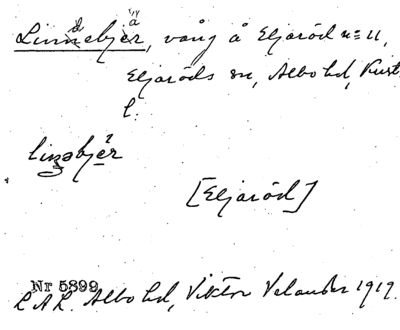 Linnebjer, vång å Eljaröd n= 11,
Eljaröds sn, Albo hd, Krist
l.
[Eljaröd]
Nr 5899
L.A.L. Albo hd, Viktor Velander 1919.